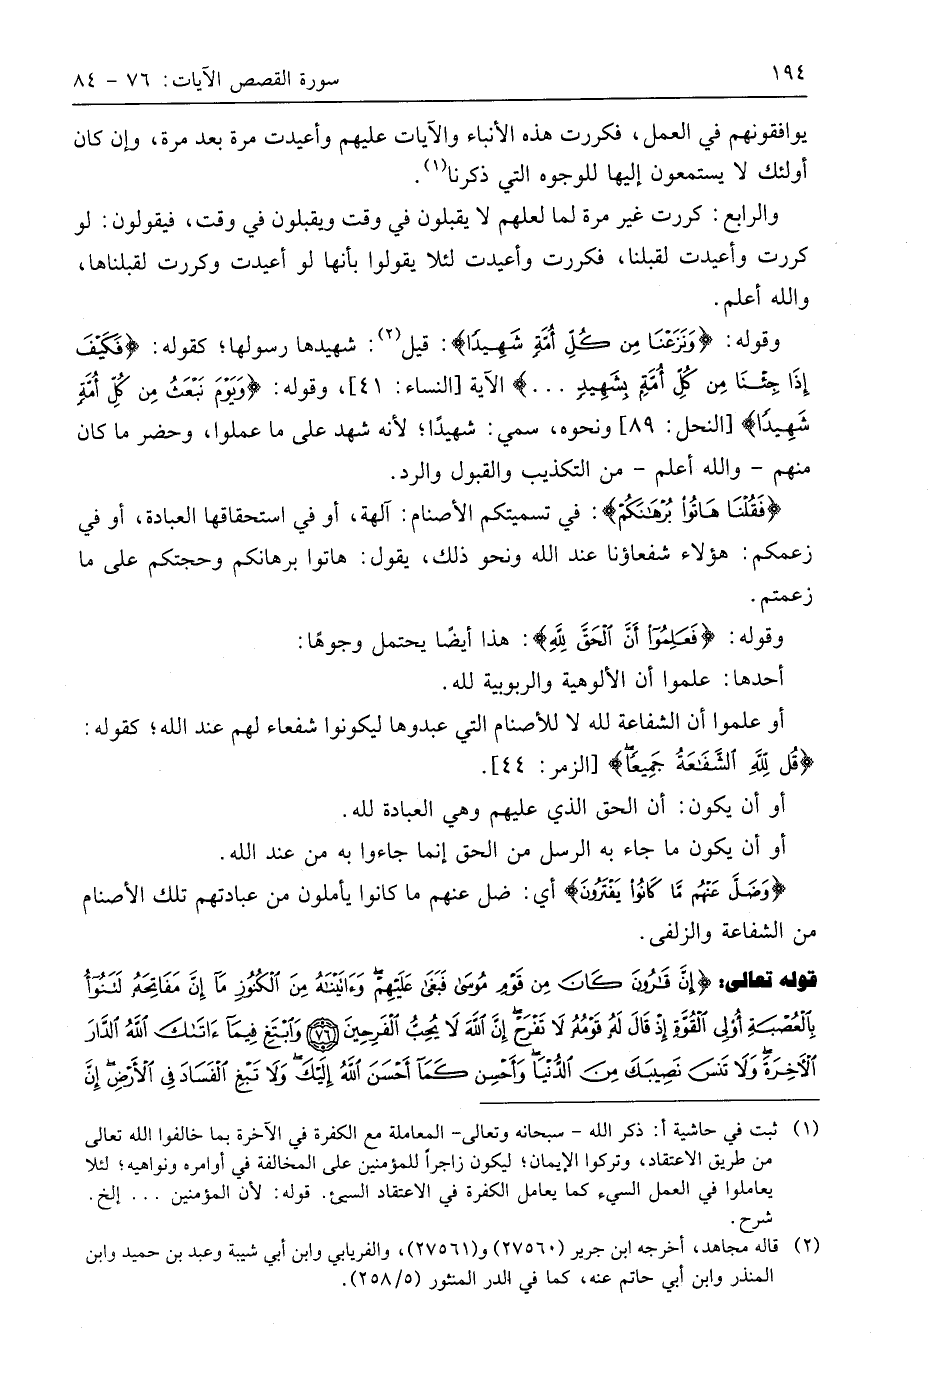 ١٩٤
سورة القصص الآيات: ٧٦ - ٨٤
يوافقونهم في العمل، فكررت هذه الأنباء والآيات عليهم وأعيدت مرة بعد مرة، وإن كان
أولئك لا يستمعون إليها للوجوه التي ذكرنا(١).
والرابع: كررت غير مرة لما لعلهم لا يقبلون في وقت ويقبلون في وقت، فيقولون: لو
كررت وأعيدت لقبلنا، فكررت وأعيدت لئلا يقولوا بأنها لو أعيدت وكررت لقبلناها،
والله أعلم.
وقوله: ﴿وَنَزَعْنَا مِن كُلِّ أُمَّةٍ شَهِيدًا﴾: قيل(٢): شهيدها رسولها؛ كقوله: ﴿فَكَيْفَ
إِذَا جِئْنَا مِن كُلِّ أُمَّةٍ بِشَهِيدٍ ...﴾ الآية [النساء: ٤١]، وقوله: ﴿وَيَوْمَ نَبْعَثُ مِن كُلِّ أُمَّةٍ
شَهِيدًا﴾ [النحل: ٨٩] ونحوه، سمي: شهيدًا؛ لأنه شهد على ما عملوا، وحضر ما كان
منهم - والله أعلم - من التكذيب والقبول والرد.
﴿فَقُلْنَا هَاتُوا۟ بُرْهَٰنَكُمْ﴾: في تسميتكم الأصنام: آلهة، أو في استحقاقها العبادة، أو في
زعمكم: هؤلاء شفعاؤنا عند الله ونحو ذلك، يقول: هاتوا برهانكم وحجتكم على ما
زعمتم.
وقوله: ﴿فَعَلِمُوٓا۟ أَنَّ ٱلْحَقَّ لِلَّهِ﴾: هذا أيضًا يحتمل وجوهًا:
أحدها: علموا أن الألوهية والربوبية لله.
أو علموا أن الشفاعة لله لا للأصنام التي عبدوها ليكونوا شفعاء لهم عند الله؛ كقوله:
﴿قُل لِّلَّهِ ٱلشَّفَٰعَةُ جَمِيعًا﴾ [الزمر: ٤٤].
أو أن يكون: أن الحق الذي عليهم وهي العبادة لله.
أو أن يكون ما جاء به الرسل من الحق إنما جاءوا به من عند الله.
﴿وَضَلَّ عَنْهُم مَّا كَانُوا۟ يَفْتَرُونَ﴾ أي: ضل عنهم ما كانوا يأملون من عبادتهم تلك الأصنام
من الشفاعة والزلفى.
قوله تعالى: ﴿إِنَّ قَٰرُونَ كَانَ مِن قَوْمِ مُوسَىٰ فَبَغَىٰ عَلَيْهِمْ ۖ وَءَاتَيْنَٰهُ مِنَ ٱلْكُنُوزِ مَآ إِنَّ مَفَاتِحَهُۥ لَتَنُوٓأُ
بِٱلْعُصْبَةِ أُو۟لِى ٱلْقُوَّةِ إِذْ قَالَ لَهُۥ قَوْمُهُۥ لَا تَفْرَحْ ۖ إِنَّ ٱللَّهَ لَا يُحِبُّ ٱلْفَرِحِينَ ﴿٧٦﴾ وَٱبْتَغِ فِيمَآ ءَاتَىٰكَ ٱللَّهُ ٱلدَّارَ
ٱلْءَاخِرَةَ ۖ وَلَا تَنسَ نَصِيبَكَ مِنَ ٱلدُّنْيَا ۖ وَأَحْسِن كَمَآ أَحْسَنَ ٱللَّهُ إِلَيْكَ ۖ وَلَا تَبْغِ ٱلْفَسَادَ فِى ٱلْأَرْضِ ۖ إِنَّ
(١) ثبت في حاشية أ: ذكر الله - سبحانه وتعالى- المعاملة مع الكفرة في الآخرة بما خالفوا الله تعالى
من طريق الاعتقاد، وتركوا الإيمان؛ ليكون زاجراً للمؤمنين على المخالفة في أوامره ونواهيه؛ لئلا
يعاملوا في العمل السيء كما يعامل الكفرة في الاعتقاد السيئ. قوله: لأن المؤمنين ... إلخ.
شرح.
(٢) قاله مجاهد، أخرجه ابن جرير (٢٧٥٦٠) و(٢٧٥٦١)، والفريابي وابن أبي شيبة وعبد بن حميد وابن
المنذر وابن أبي حاتم عنه، كما في الدر المنثور (٢٥٨/٥).